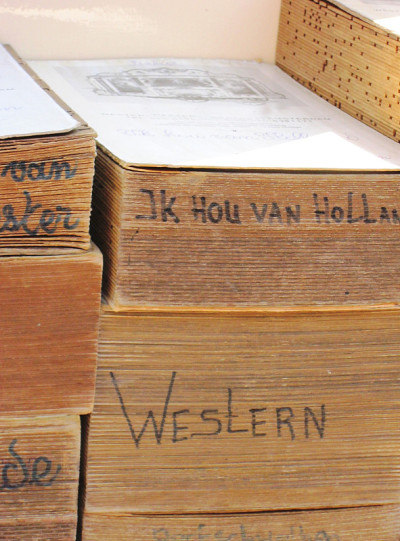 van
ster
IK HOU VAN HOLLAN
WESTERN
de